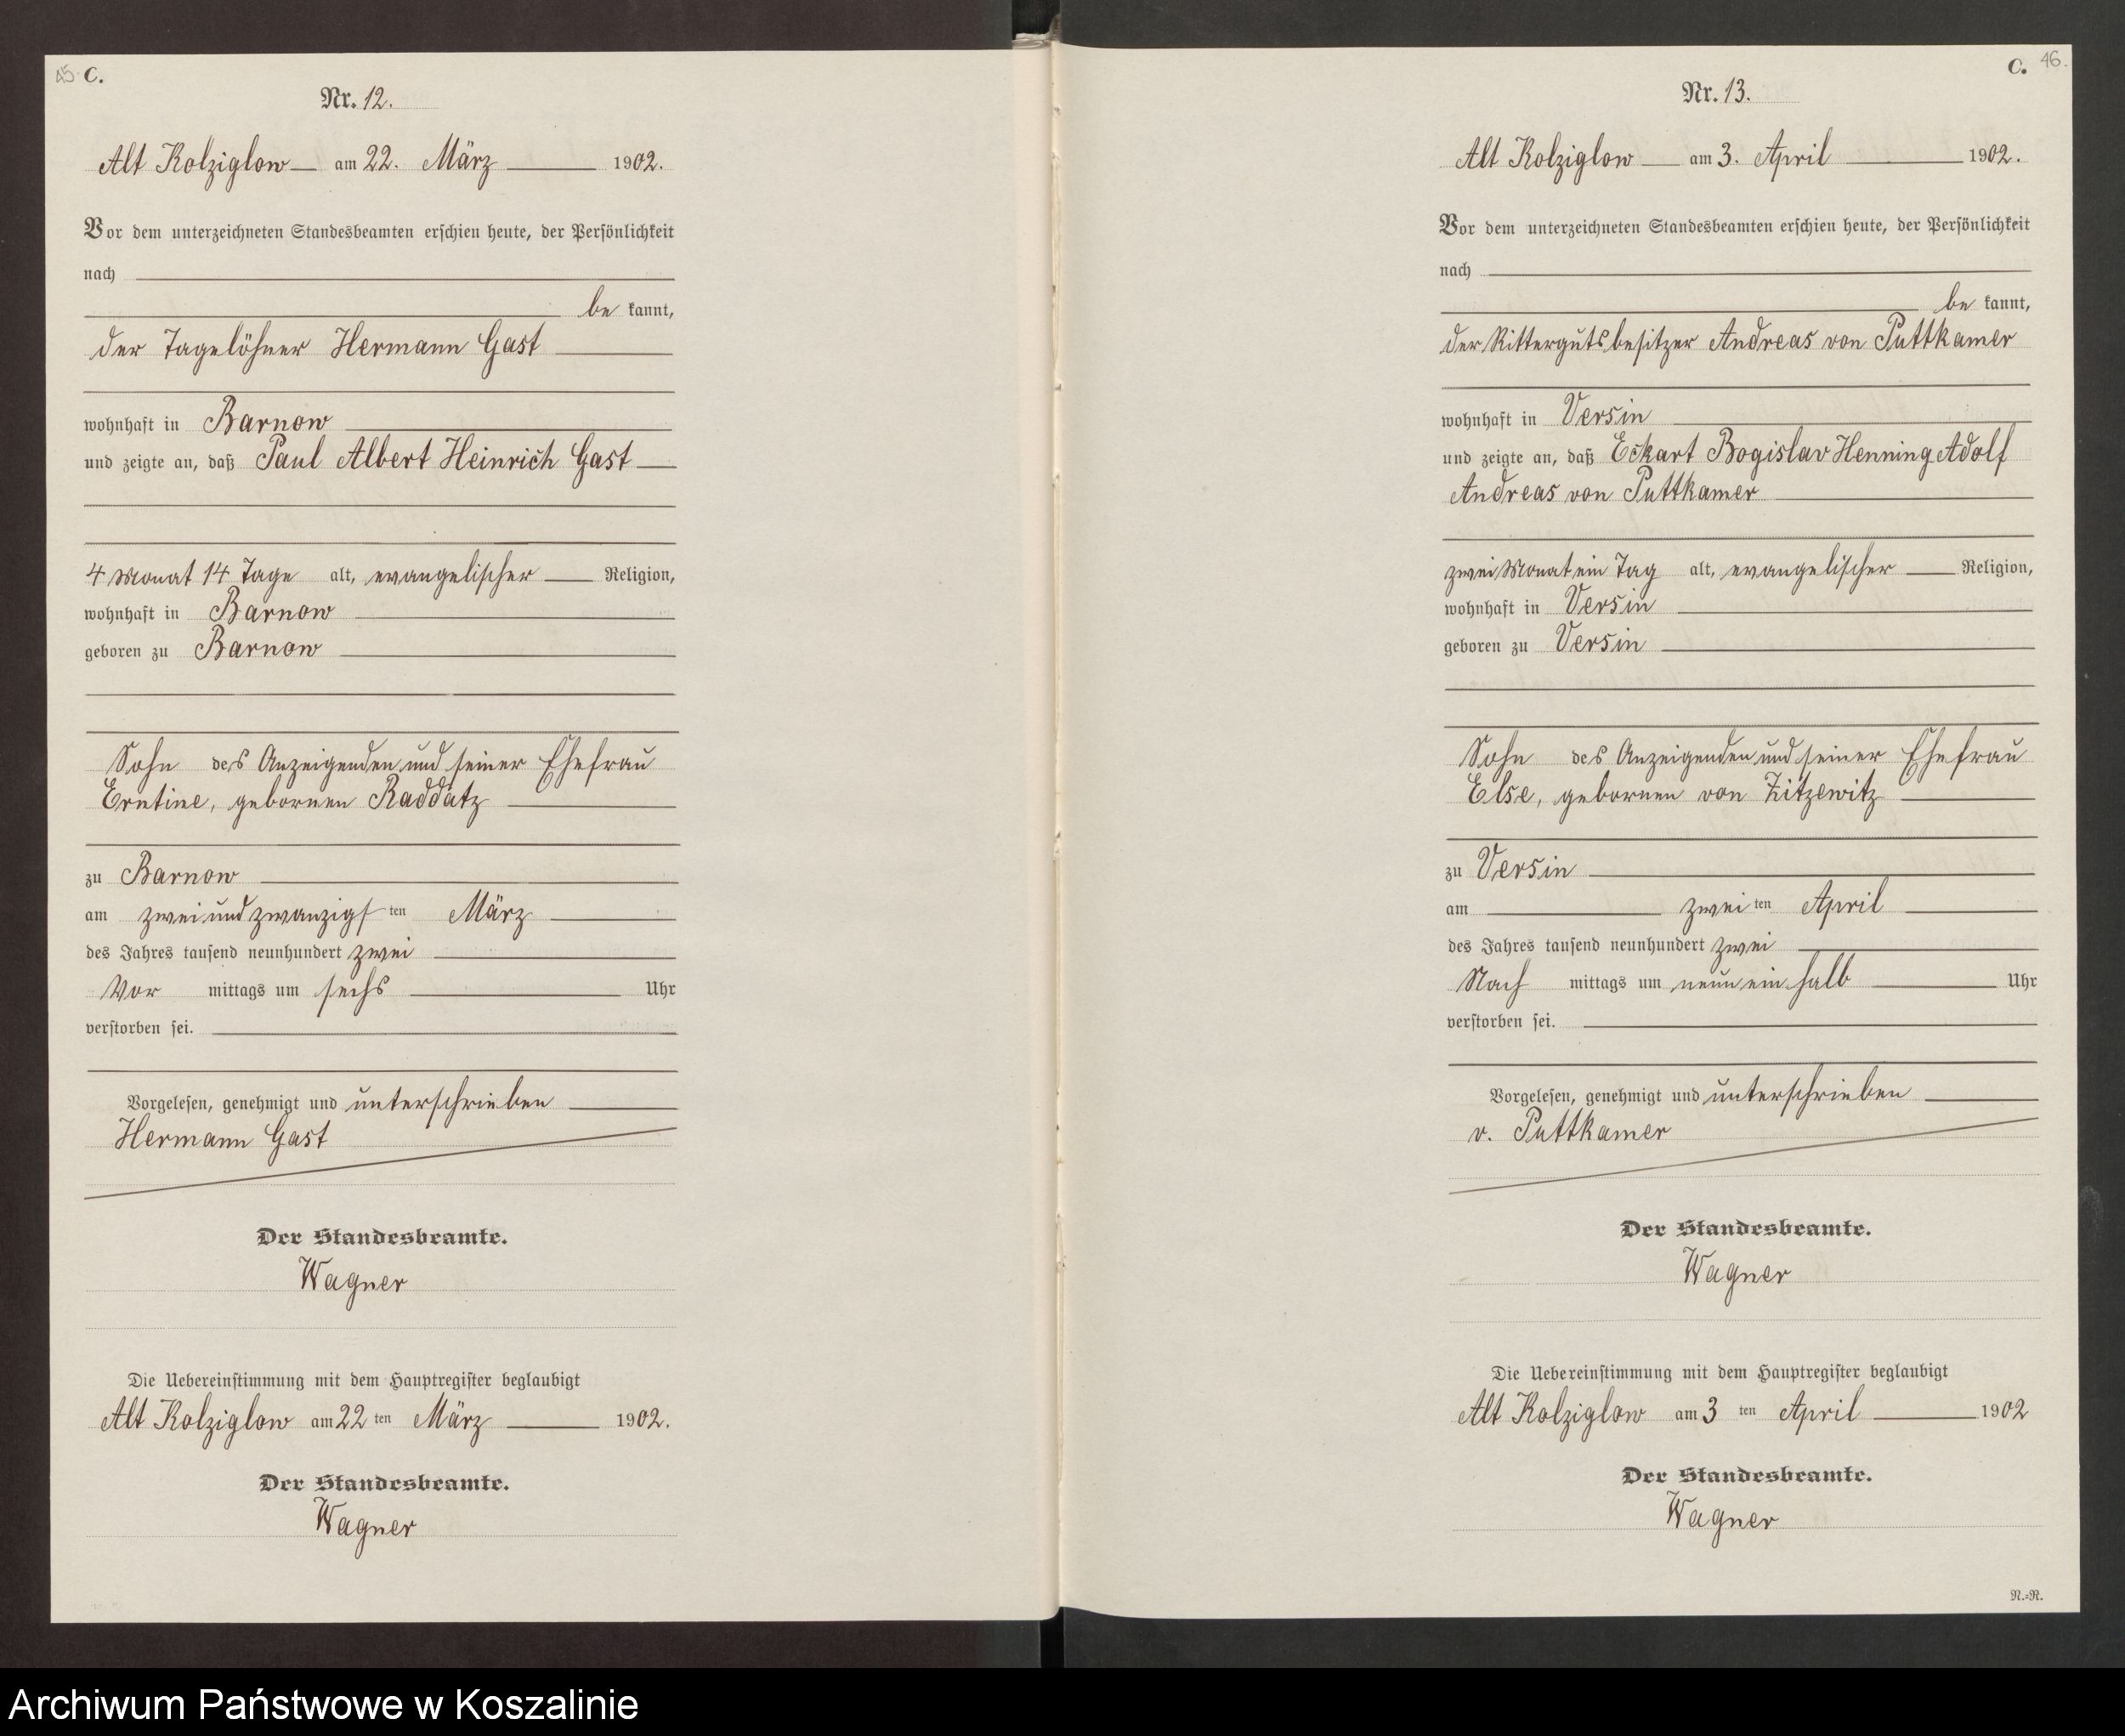 45. C.
Nr. 12.
Alt Kolziglow am 22. März 1902.
Vor dem unterzeichneten Standesbeamten erschien heute, der Persönlichkeit
nach
be kannt,
der Tagelöhner Hermann Gast
wohnhaft in Barnow
und zeigte an, daß Paul Albert Heinrich Gast
4 Monat 14 Tage alt, evangelischer Religion,
wohnhaft in Barnow
geboren zu Barnow
Sohn des Anzeigenden und seiner Ehefrau
Erntine, gebornen Raddatz
zu Barnow
am zwei und zwanzigsten März
des Jahres tausend neunhundert zwei
Vor mittags um sechs Uhr
verstorben sei.
Vorgelesen, genehmigt und unterschrieben
Hermann Gast
Der Standesbeamte.
Wagner
Die Uebereinstimmung mit dem Hauptregister beglaubigt
Alt Kolziglow am 22 ten März 1902.
Der Standesbeamte.
Wagner
C. 46.
Nr. 13.
Alt Kolziglow am 3. April 1902.
Vor dem unterzeichneten Standesbeamten erschien heute, der Persönlichkeit
nach
be kannt,
der Rittergutsbesitzer Andreas von Puttkamer
wohnhaft in Versin
und zeigte an, daß Eckart Bogislav Henning Adolf
Andreas von Puttkamer
zwei Monat ein Tag alt, evangelischer Religion,
wohnhaft in Versin
geboren zu Versin
Sohn des Anzeigenden und seiner Ehefrau
Else, gebornen von Zitzewitz
zu Versin
am zwei ten April
des Jahres tausend neunhundert zwei
Nach mittags um neun ein halb Uhr
verstorben sei.
Vorgelesen, genehmigt und unterschrieben
v. Puttkamer
Der Standesbeamte.
Wagner
Die Uebereinstimmung mit dem Hauptregister beglaubigt
Alt Kolziglow am 3 ten April 1902
Der Standesbeamte.
Wagner
N.=R.
Archiwum Państwowe w Koszalinie